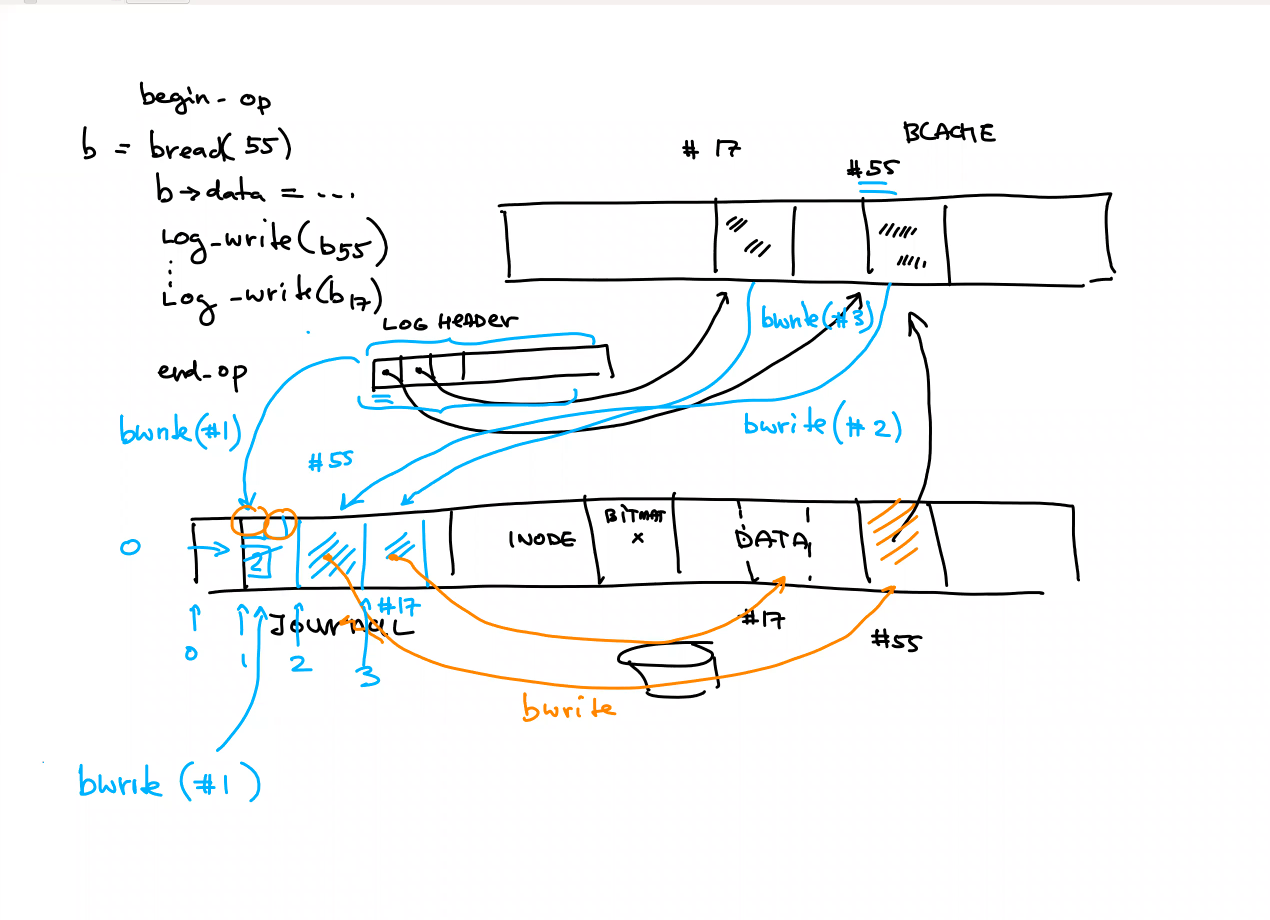 begin_op
b = bread(55)
b→data = ...
Log_write(b55)
Log_write(b17)
end_op
# 17
BCACHE
#55
LOG HEADER
bwrite(#3)
bwrite(#1)
bwrite(#2)
#55
0
2
INODE
BITMAP
x
DATA
#17
JOURNAL
#17
#55
0
1
2
3
bwrite
bwrite (#1)